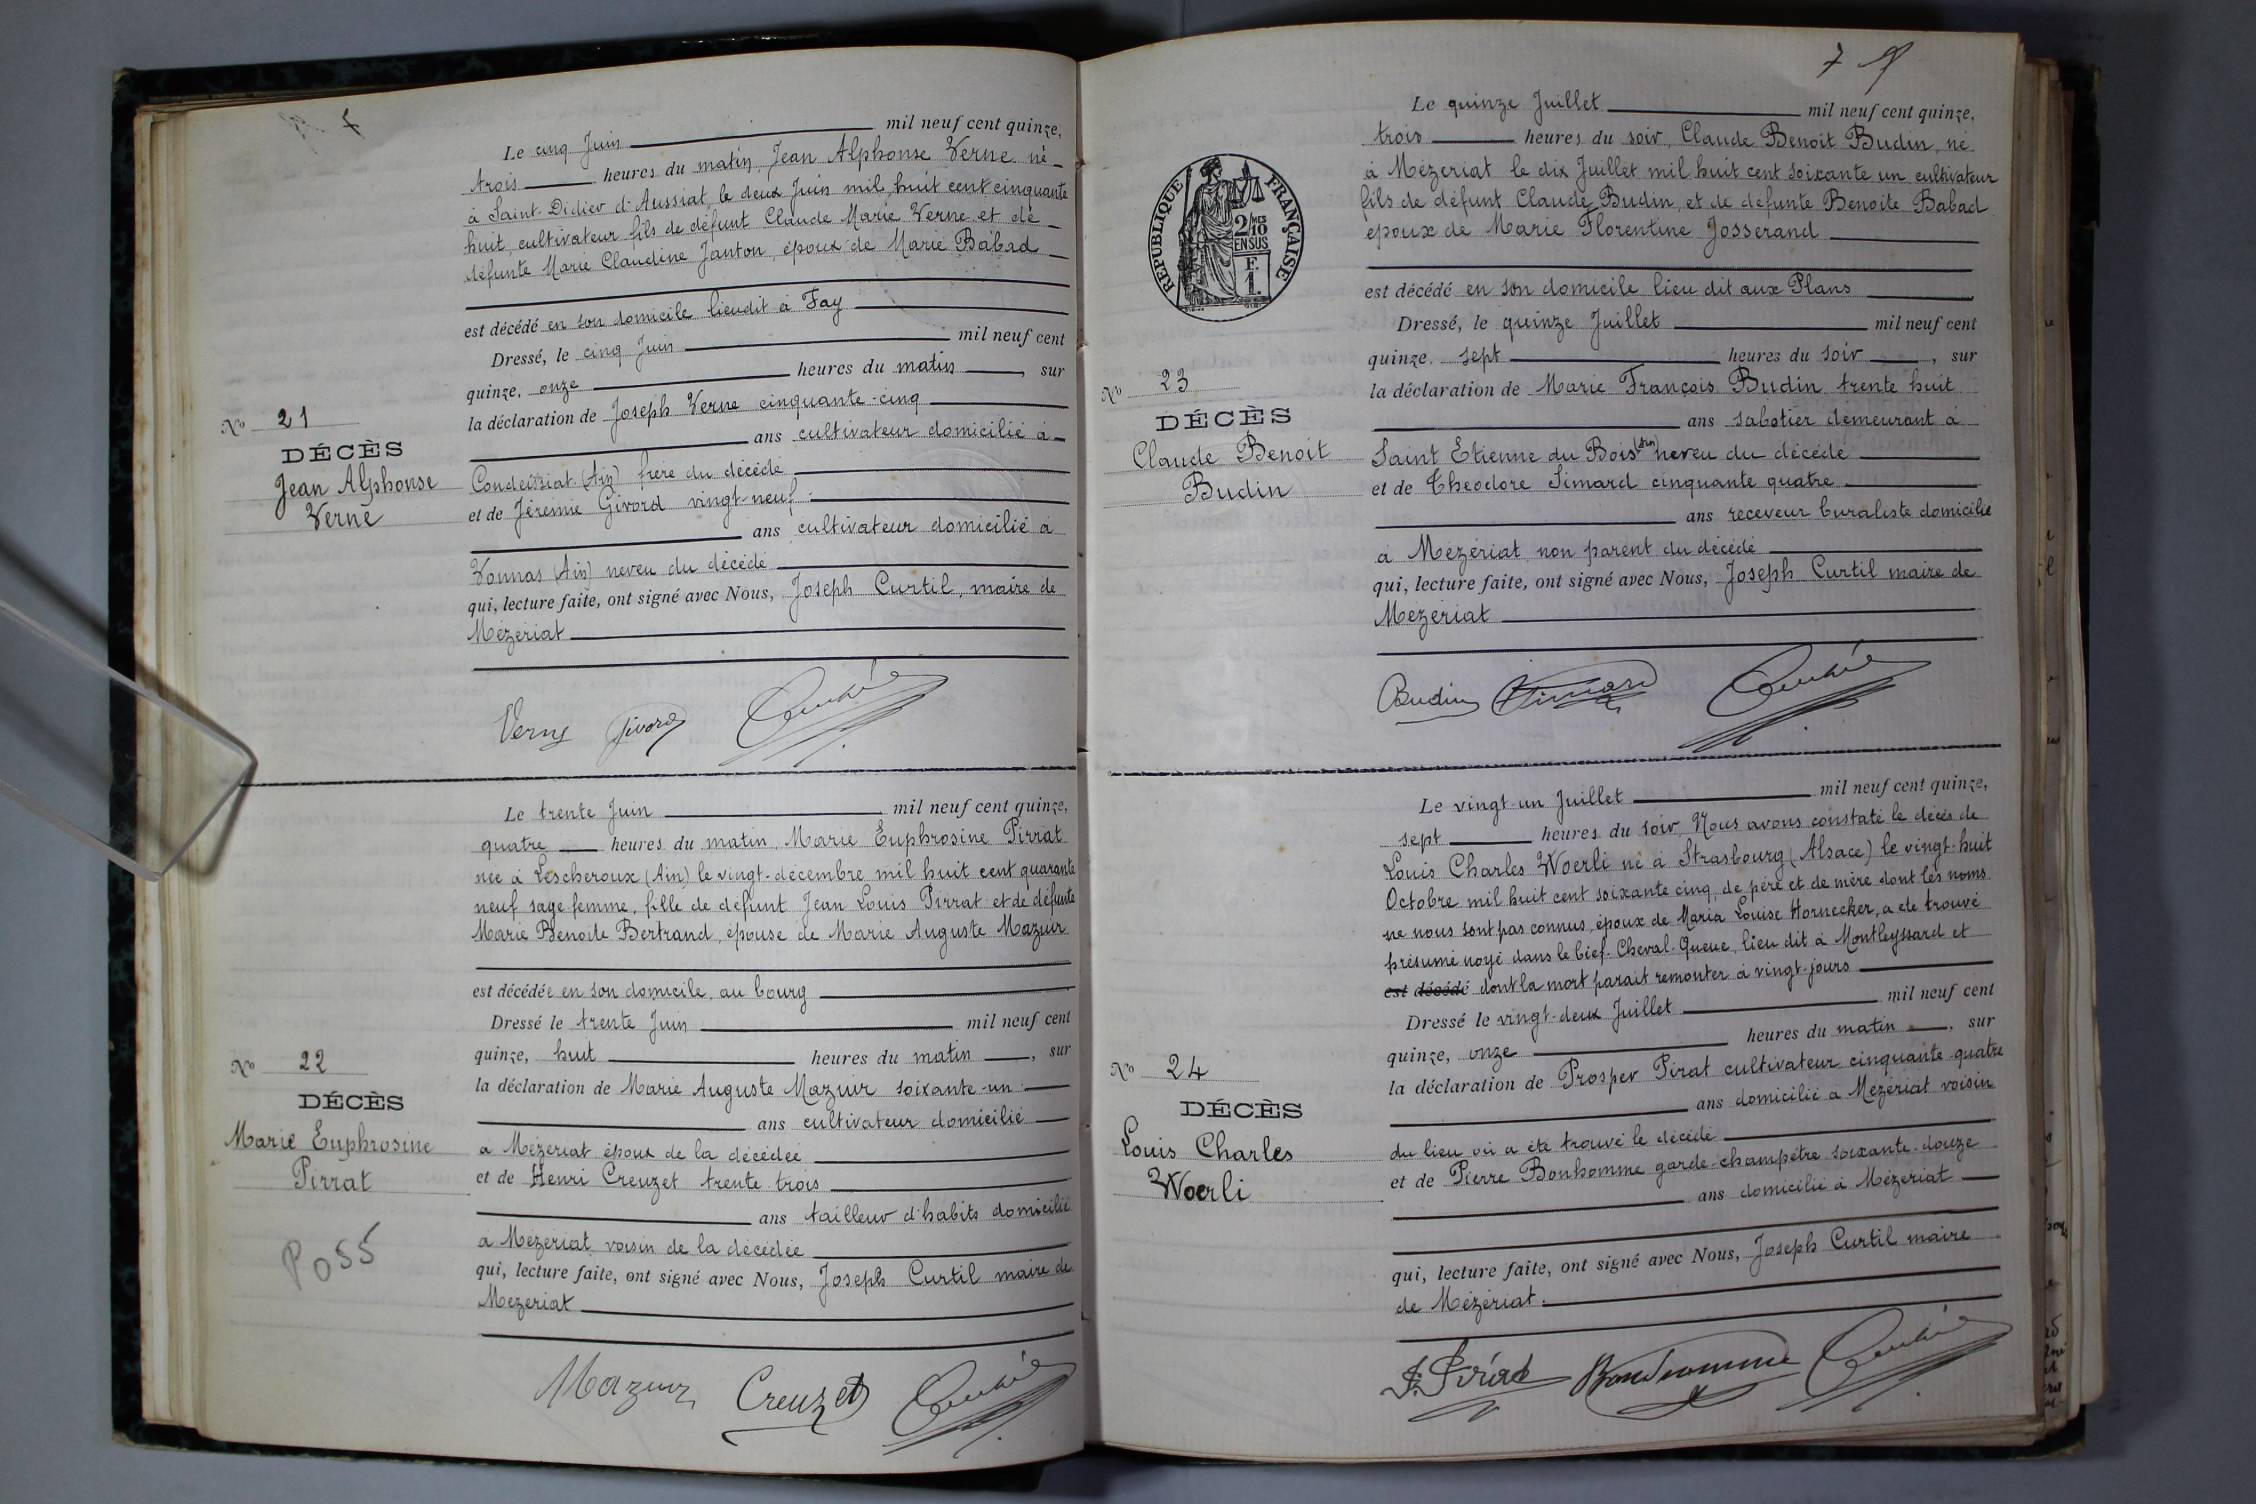 7
Le cinq Juin mil neuf cent quinze,
trois heures du matin, Jean Alphonse Verne né
à Saint-Didier d'Aussiat, le deux Juin mil huit cent cinquante
huit, cultivateur fils de défunt Claude Marie Verne et de
défunte Marie Claudine Janton, époux de Marie Babad
est décédé en son domicile lieudit à Fay
Dressé, le cinq Juin mil neuf cent
quinze, onze heures du matin, sur
la déclaration de Joseph Verne cinquante-cinq
ans cultivateur domicilié à
Condeissiat (Ain) frère du décédé
et de Jérémie Givord vingt-neuf
ans cultivateur domicilié à
Vonnas (Ain) neveu du décédé
qui, lecture faite, ont signé avec Nous, Joseph Curtil, maire de
Mézériat
No 21
DÉCÈS
Jean Alphonse
Verne
Verne Givord
Le trente Juin mil neuf cent quinze,
quatre heures du matin, Marie Euphrosine Pirrat
née à Lescheroux (Ain) le vingt-décembre mil huit cent quarante
neuf sage femme, fille de défunt Jean Louis Pirrat et de défunte
Marie Benoite Bertrand, épouse de Marie Auguste Mazuir
est décédée en son domicile, au bourg
Dressé le trente Juin mil neuf cent
quinze, huit heures du matin, sur
la déclaration de Marie Auguste Mazuir soixante-un
ans cultivateur domicilié
à Mézériat époux de la décédée
et de Henri Creuzet trente trois
ans tailleur d'habits domicilié
à Mézériat, voisin de la décédée
qui, lecture faite, ont signé avec Nous, Joseph Curtil maire de
Mézériat
No 22
DÉCÈS
Marie Euphrosine
Pirrat
P055
Mazuir Creuzet
7
Le quinze Juillet mil neuf cent quinze,
trois heures du soir, Claude Benoit Budin, né
à Mézériat le dix Juillet mil huit cent soixante un cultivateur
fils de défunt Claude Budin, et de défunte Benoite Babad
époux de Marie Florentine Josserand
est décédé en son domicile lieu dit aux Plans
Dressé, le quinze Juillet mil neuf cent
quinze, sept heures du soir, sur
la déclaration de Marie François Budin trente huit
ans sabotier demeurant à
Saint Etienne du Bois (Ain) neveu du décédé
et de Théodore Simard cinquante quatre
ans receveur buraliste domicilié
à Mézériat, non parent du décédé
qui, lecture faite, ont signé avec Nous, Joseph Curtil maire de
Mézériat
RÉPUBLIQUE FRANÇAISE
2/10 MES
EN SUS
F.
1.
No 23
DÉCÈS
Claude Benoit
Budin
Budin Simard
Le vingt-un Juillet mil neuf cent quinze,
sept heures du soir, Nous avons constaté le décès de
Louis Charles Woerli né à Strasbourg (Alsace) le vingt-huit
Octobre mil huit cent soixante cinq, de père et de mère dont les noms
ne nous sont pas connus, époux de Maria Louise Hornecker, a été trouvé
présumé noyé dans le bief-Cheval-Queue, lieu dit à Montleyssard et
est décédé dont la mort parait remonter à vingt-jours
Dressé le vingt-deux Juillet mil neuf cent
quinze, onze heures du matin, sur
la déclaration de Prosper Pirat cultivateur cinquante-quatre
ans domicilié à Mézériat voisin
du lieu où a été trouvé le décédé
et de Pierre Bonhomme garde-champêtre soixante-douze
ans domicilié à Mézériat
qui, lecture faite, ont signé avec Nous, Joseph Curtil maire
de Mézériat.
No 24
DÉCÈS
Louis Charles
Woerli
P. Pirat Bonhomme